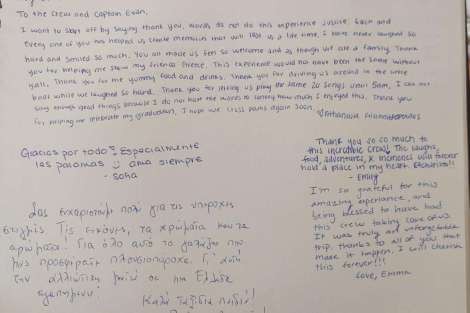 To the Crew and Captain Evan,
I want to start off by saying thank you, words do not do this experience justice. Each and
every one of you has helped us create memories that will last us a life time. I have never laughed so
hard and smiled so much. You all made us feel so welcome and as though we are a family. Thank
you for helping me show my friends Greece. This experience would not have been the same without
y'all. Thank you for the yummy food and drinks. Thank you for driving us around in the little
boat while we laughed so hard. Thank you for letting us play the same 20 songs until 5am. I can not
say enough good things because I do not have the words to convey how much I enjoyed this. Thank you
for helping me celebrate my graduation, I hope we cross paths again soon.
Gracias por todo! Especialmente
las panamas :) ama siempre
- Sofia
Thank you so so much to
this incredible crew! The laughs,
food, adventures, & memories will forever
hold a place in my heart. Efcharistó!!
- Emily
I'm so grateful for this
amazing experience, and
being blessed to have had
this crew taking care of us.
It was truly an unforgettable
trip. Thanks to all of you that
made it happen, I will cherish
this forever!!!
Love, Emma
Σας ευχαριστούμε πολύ για τις υπέροχες
στιγμές. Τις εικόνες, τα χρώματα και τα
αρώματα. Για όλο αυτό το γαλάζιο που
μας προσφέρατε πλουσιοπάροχα. Γι' αυτή
την αλλιώτικη μαγεία σε μια Ελλάδα
αγαπημένη!
Καλά Ταξίδια παιδιά!